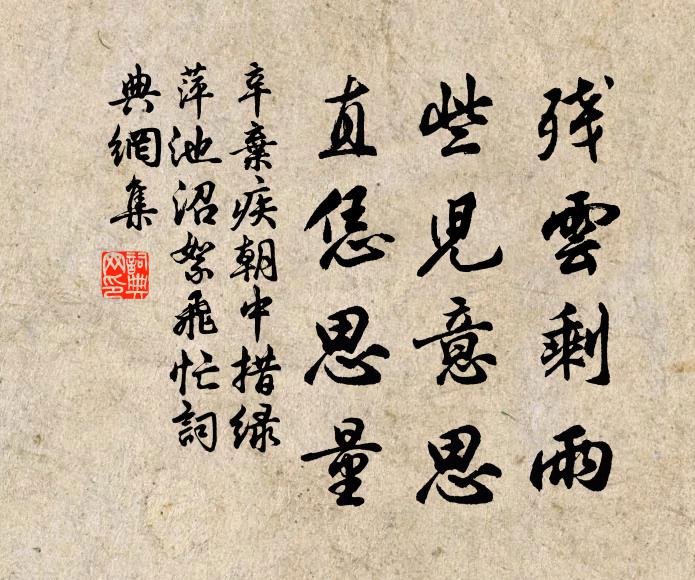 残雲剩雨
些兒意思
直恁思量
辛棄疾朝中措绿
萍池沼絮飛忙詞
典網集
詞典
网印